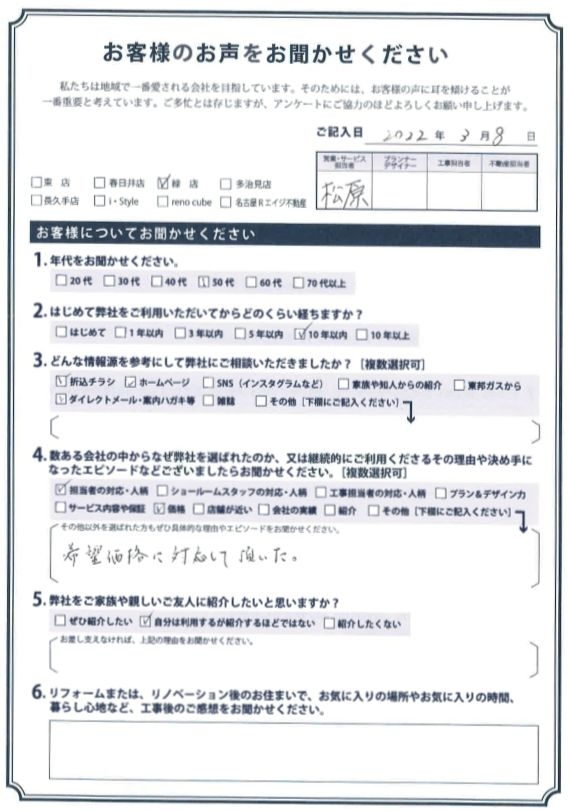 お客様のお声をお聞かせください
私たちは地域で一番愛される会社を目指しています。そのためには、お客様の声に耳を傾けることが
一番重要と考えています。ご多忙とは存じますが、アンケートにご協力のほどよろしくお願い申し上げます。
ご記入日 2022 年 3 月 8 日
営業・サービス担当者 プランナーデザイナー 工事担当者 不動産担当者
松原
□東 店 □春日井店 ☑緑 店 □多治見店
□長久手店 □i・Style □reno cube □名古屋Rエイジ不動産
お客様についてお聞かせください
1. 年代をお聞かせください。
□20代 □30代 □40代 ☑50代 □60代 □70代以上
2. はじめて弊社をご利用いただいてからどのくらい経ちますか?
□はじめて □1年以内 □3年以内 □5年以内 ☑10年以内 □10年以上
3. どんな情報源を参考にして弊社にご相談いただきましたか?［複数選択可］
☑折込チラシ ☑ホームページ □SNS（インスタグラムなど） □家族や知人からの紹介 □東邦ガスから
☑ダイレクトメール・案内ハガキ等 □雑誌 □その他［下欄にご記入ください］
4. 数ある会社の中からなぜ弊社を選ばれたのか、又は継続的にご利用くださるその理由や決め手に
なったエピソードなどございましたらお聞かせください。［複数選択可］
☑担当者の対応・人柄 □ショールームスタッフの対応・人柄 □工事担当者の対応・人柄 □プラン&デザイン力
□サービス内容や保証 ☑価格 □店舗が近い □会社の実績 □紹介 □その他［下欄にご記入ください］
その他以外を選ばれた方もぜひ具体的な理由やエピソードをお聞かせください。
希望価格に対応して頂いた。
5. 弊社をご家族や親しいご友人に紹介したいと思いますか?
□ぜひ紹介したい ☑自分は利用するが紹介するほどではない □紹介したくない
お差し支えなければ、上記の理由をお聞かせください。
6. リフォームまたは、リノベーション後のお住まいで、お気に入りの場所やお気に入りの時間、
暮らし心地など、工事後のご感想をお聞かせください。